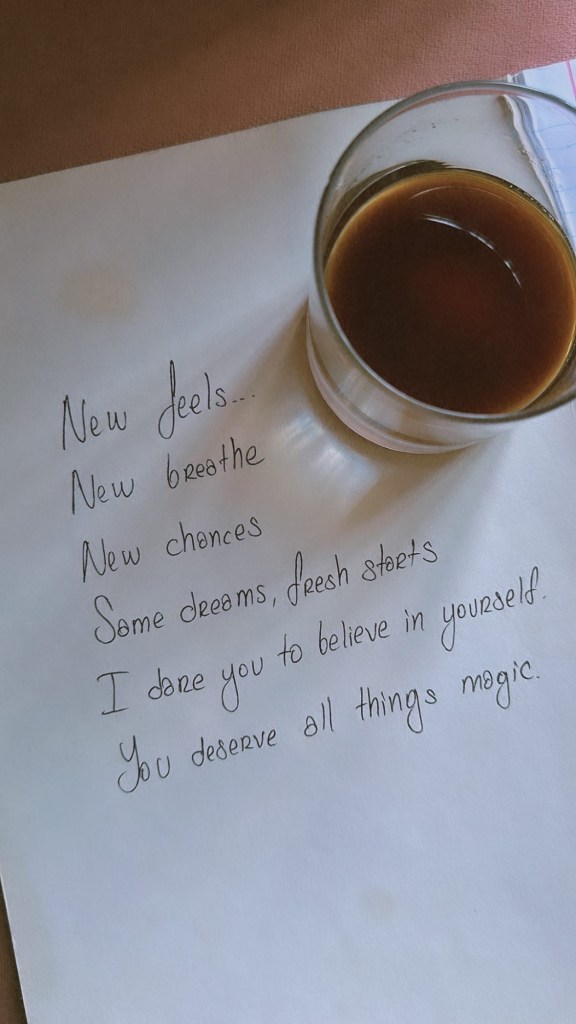 New feels...
New breathe
New chances
Same dreams, fresh starts
I dare you to believe in yourself.
You deserve all things magic.